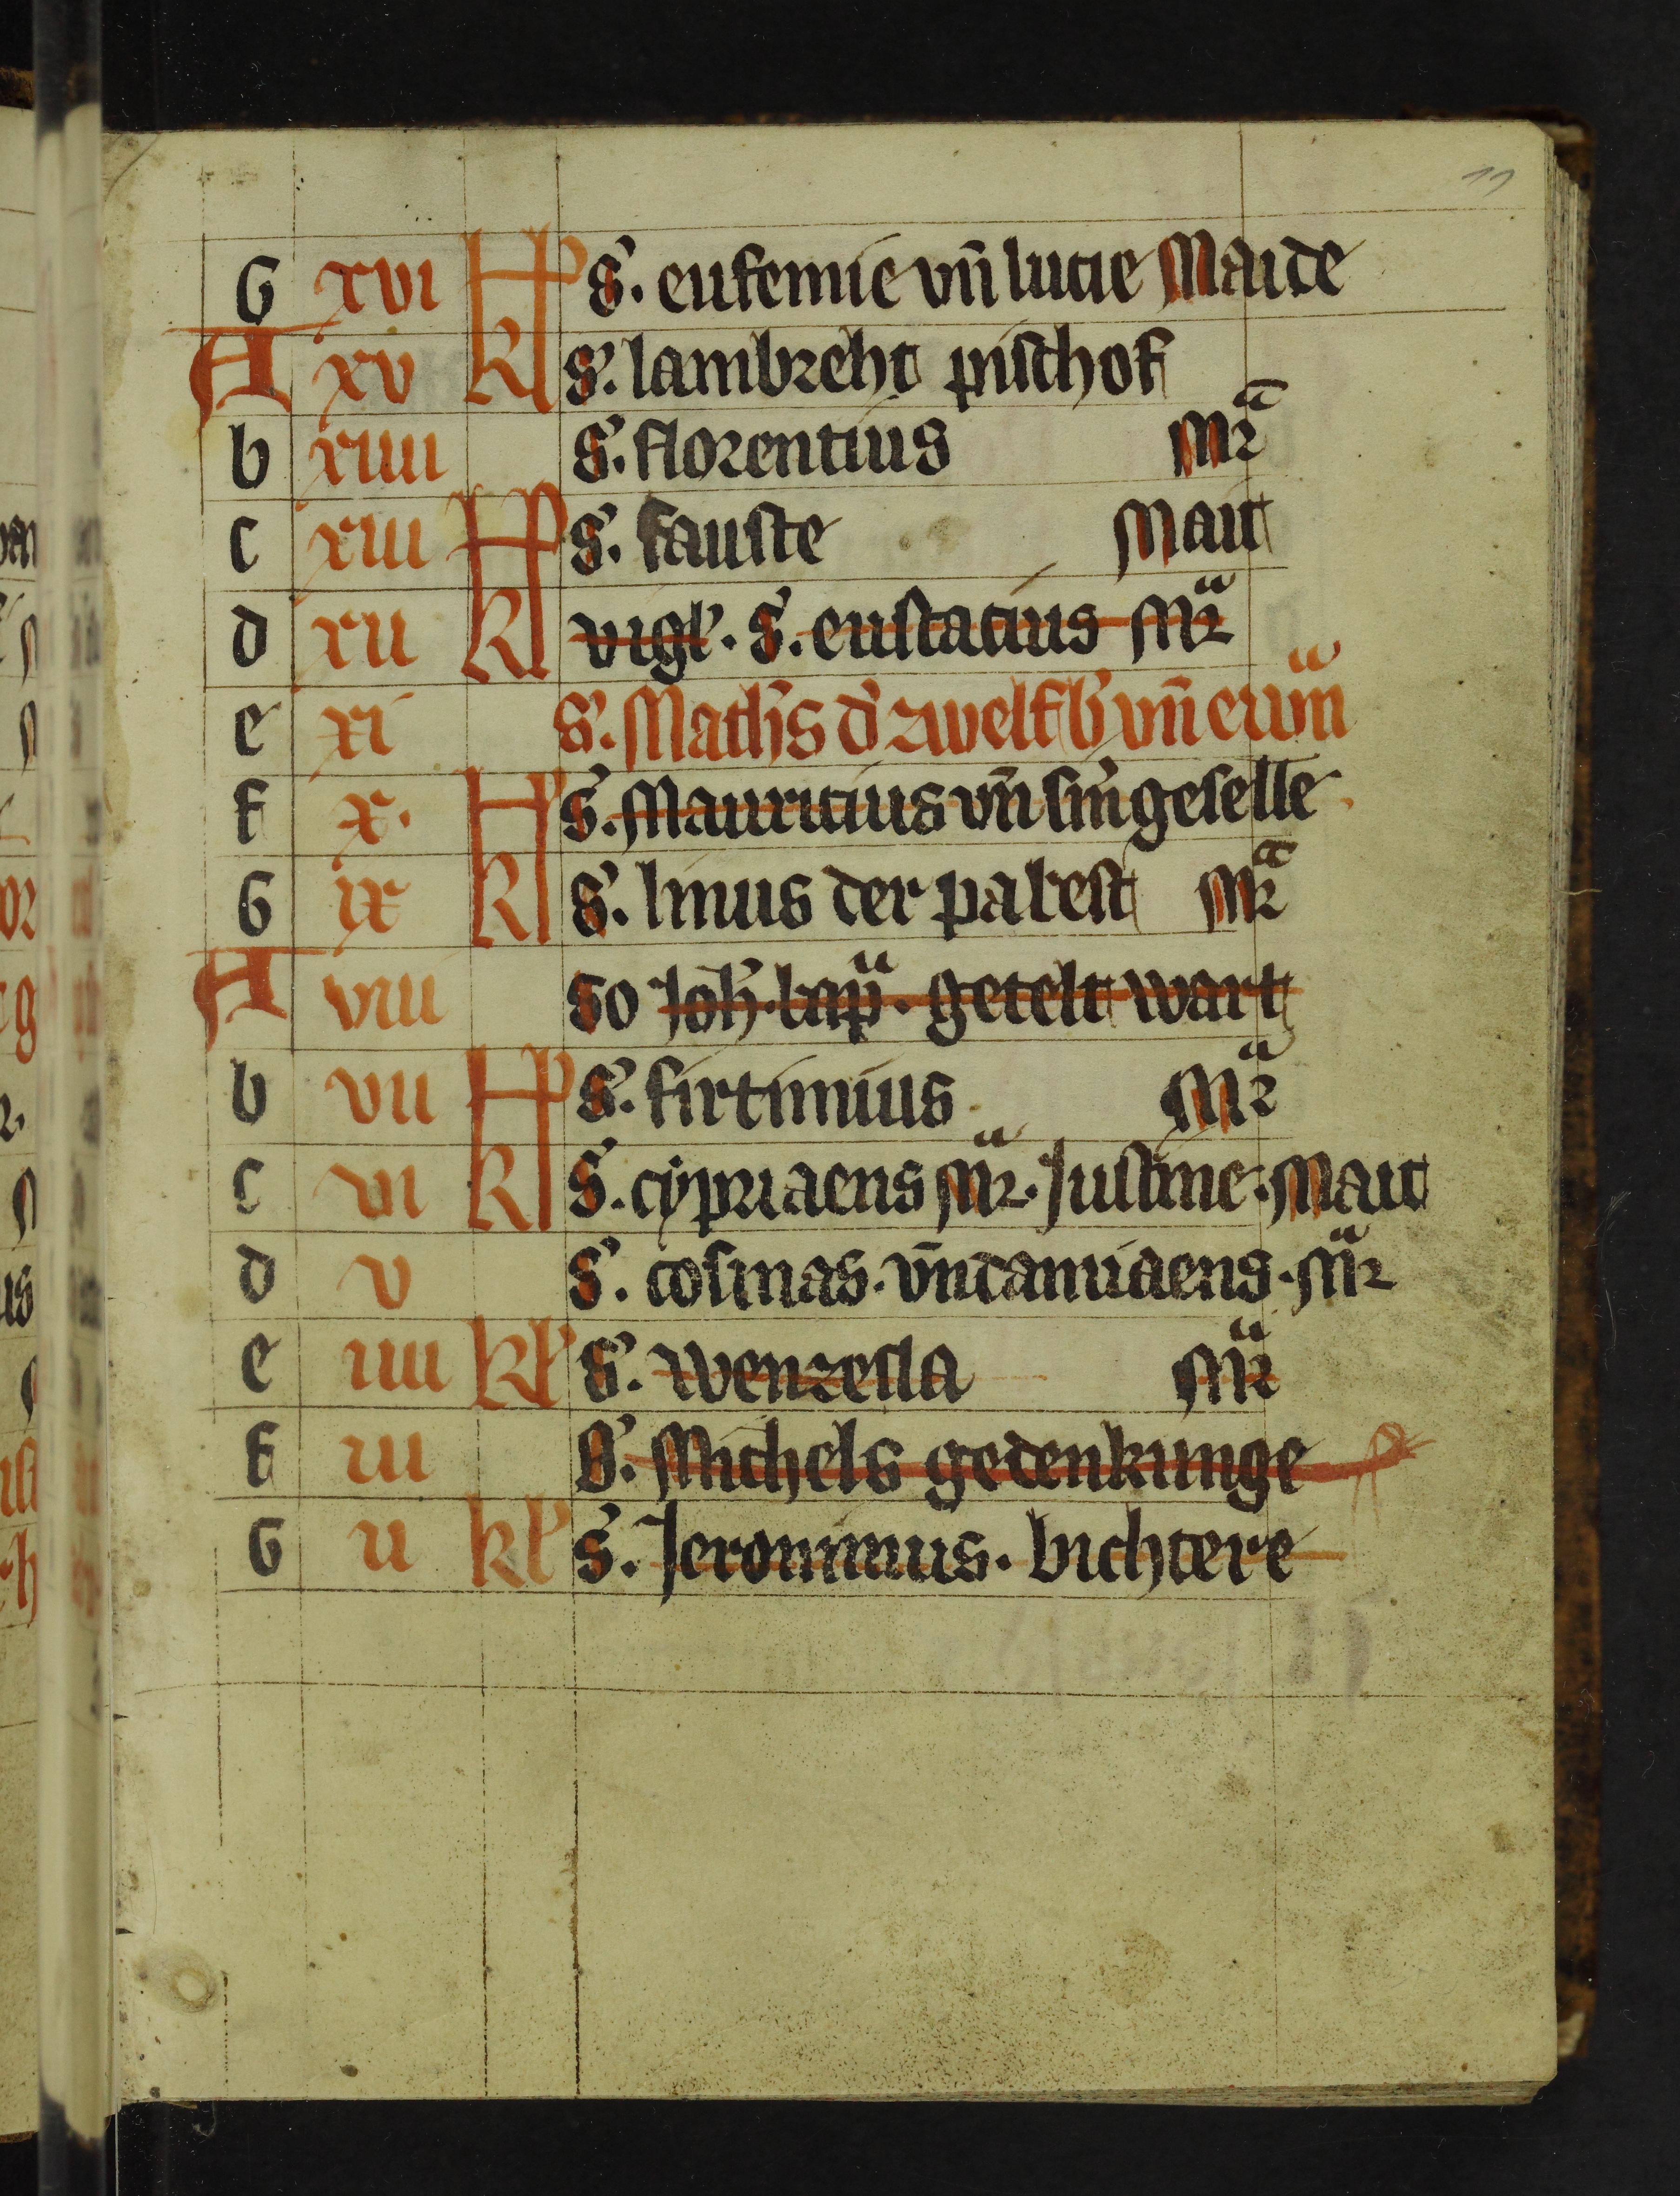 11
G xvi kl' S'. eufemie vn̄ lucie Maide
A xv kl' S'. lambreht pischof
b xiiii S'. florentius mr̄
c xiii kl' S'. fauste Mait
d xii kl' vigl'. S'. eustacius Mr
e xi S'. Math's d' zwelfb' vn̄ ewn̄
f x. kl' S'. Mauricius vn̄ sin' geselle
G ix kl' S'. linus der pabest Mr
A viii So Joh'. bap. getelt wart
b vii kl' S'. firtimius Mr
c vi kl' S'. cypriaens Mr. Justine. Mait
d v S'. cosmas. vn̄ damiaens. Mr
e iiii kl' S'. wenzesla Mr
f iii S'. Michels gedenkunge
G ii kl' S'. Jeronimus. bichtere